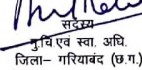 सदस्य
मु.चि एवं स्वा. अधि.
जिला– गरियाबंद (छ.ग.)